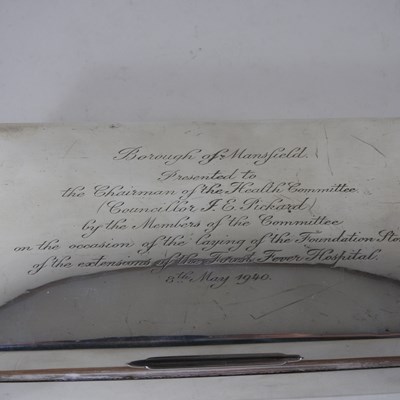 Borough of Mansfield
Presented to
the Chairman of the Health Committee
(Councillor J. E. Pickard)
by the Members of the Committee
on the occasion of the laying of the Foundation Sto
of the extensions of the Forest Fever Hospital.
8th May 1940.